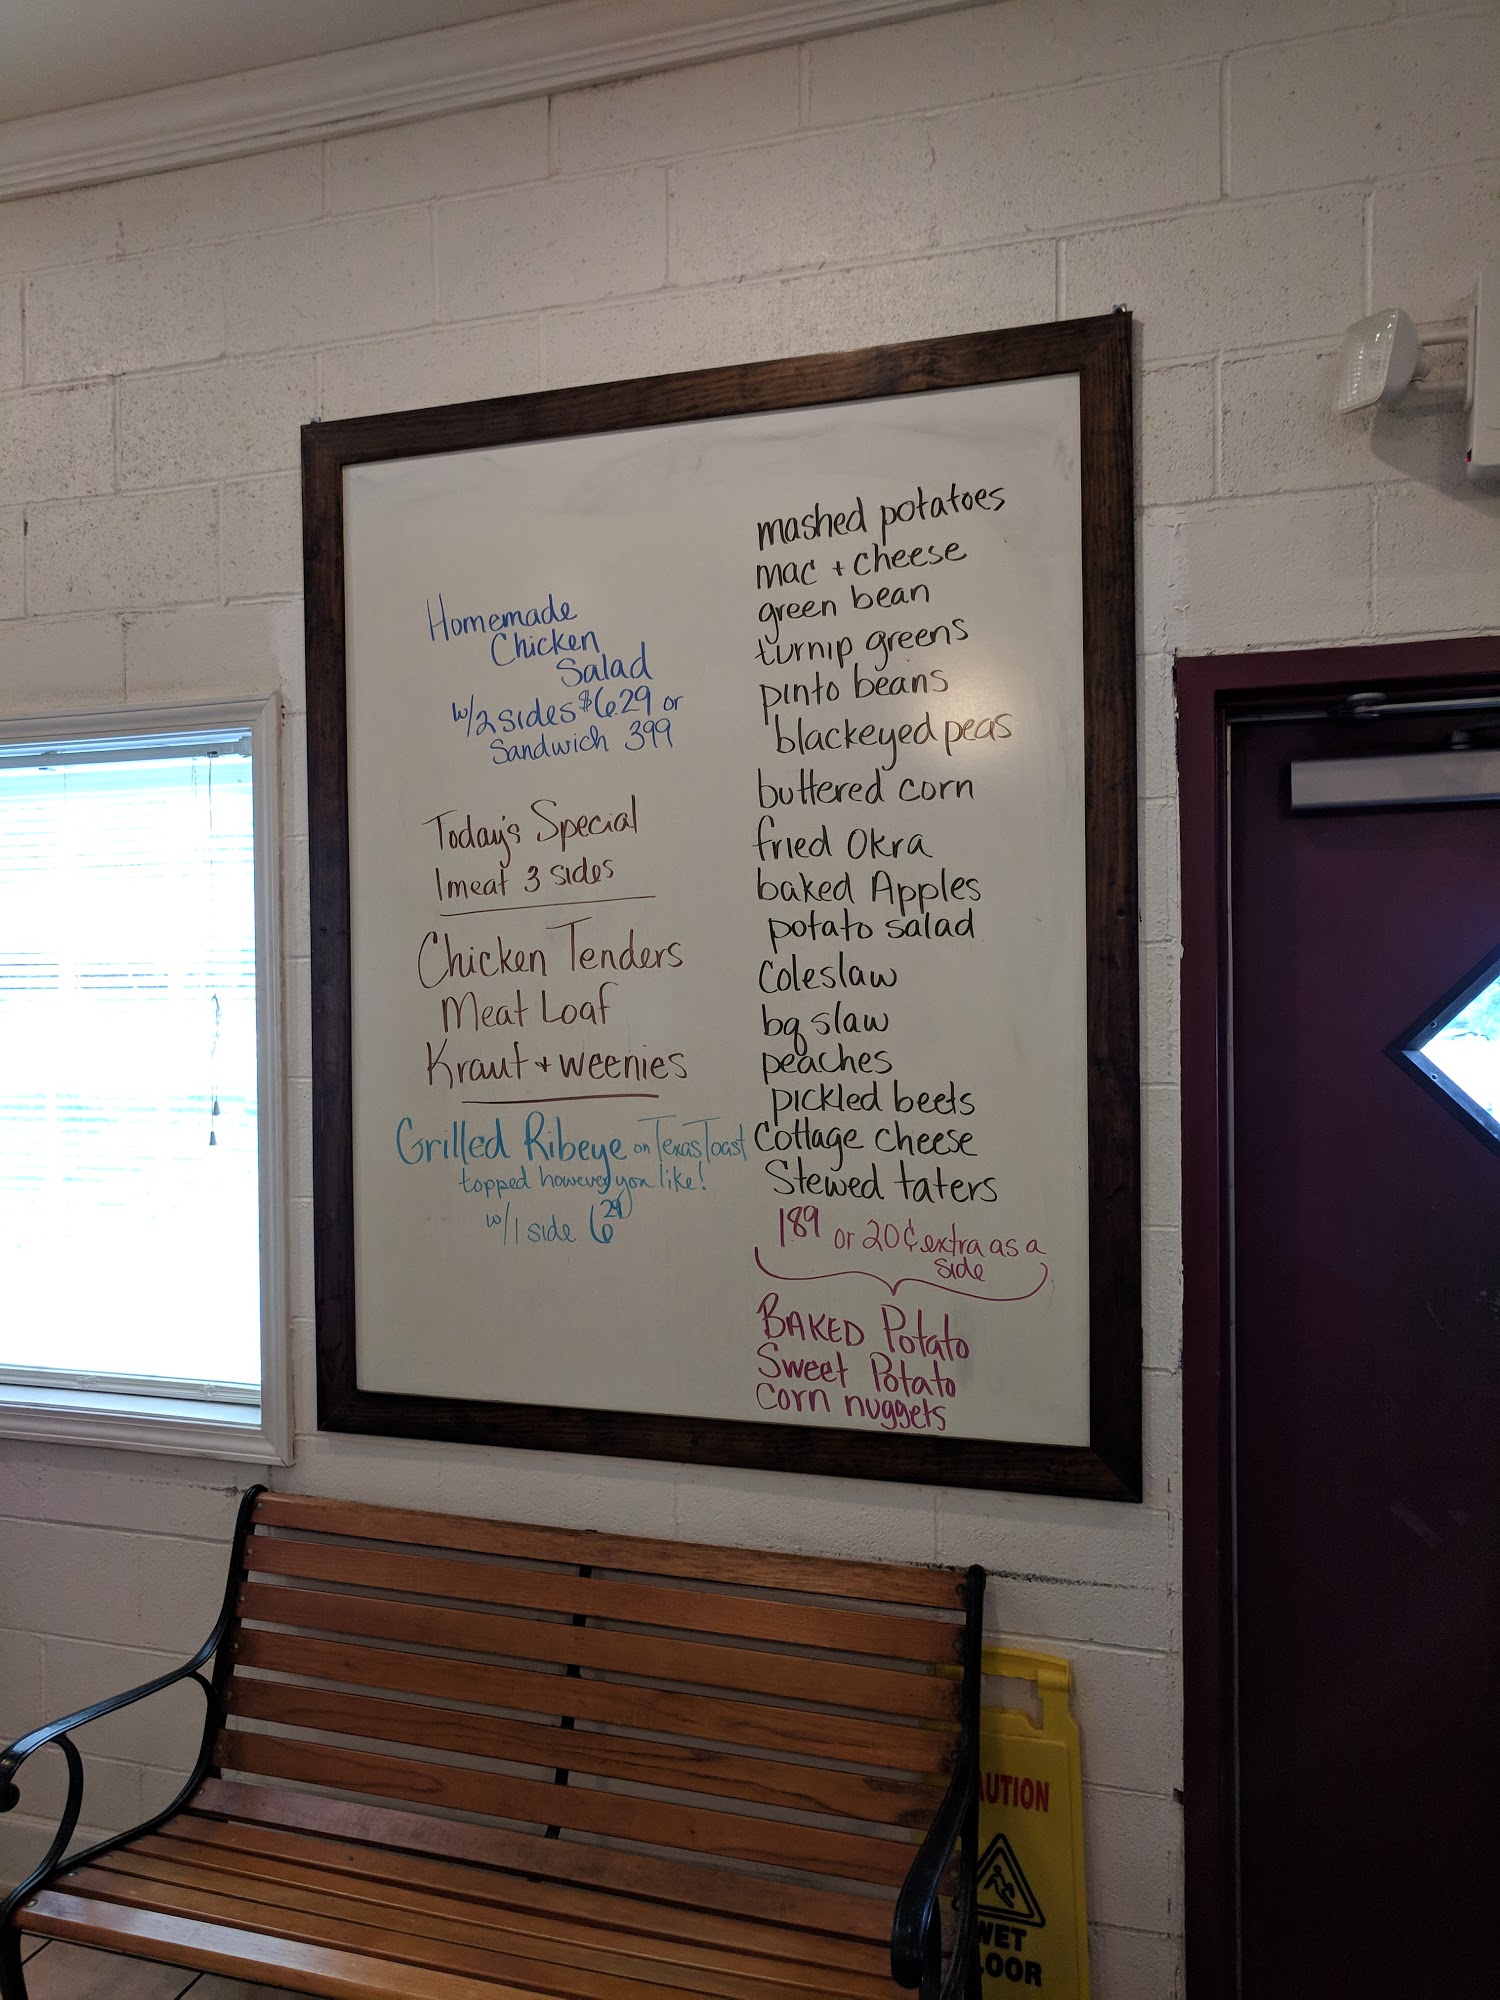 Homemade
Chicken
Salad
w/2 sides $6.29 or
Sandwich 399
Today's Special
1 meat 3 sides
Chicken Tenders
Meat Loaf
Kraut + weenies
Grilled Ribeye on Texas Toast
topped however you like!
w/1 side 6 29
mashed potatoes
mac + cheese
green bean
turnip greens
pinto beans
blackeyed peas
buttered corn
fried Okra
baked Apples
potato salad
Coleslaw
bq slaw
peaches
pickled beets
Cottage cheese
Stewed taters
1.89 or 20¢ extra as a
side
BAKED Potato
Sweet Potato
corn nuggets
AUTION
WET
LOOR